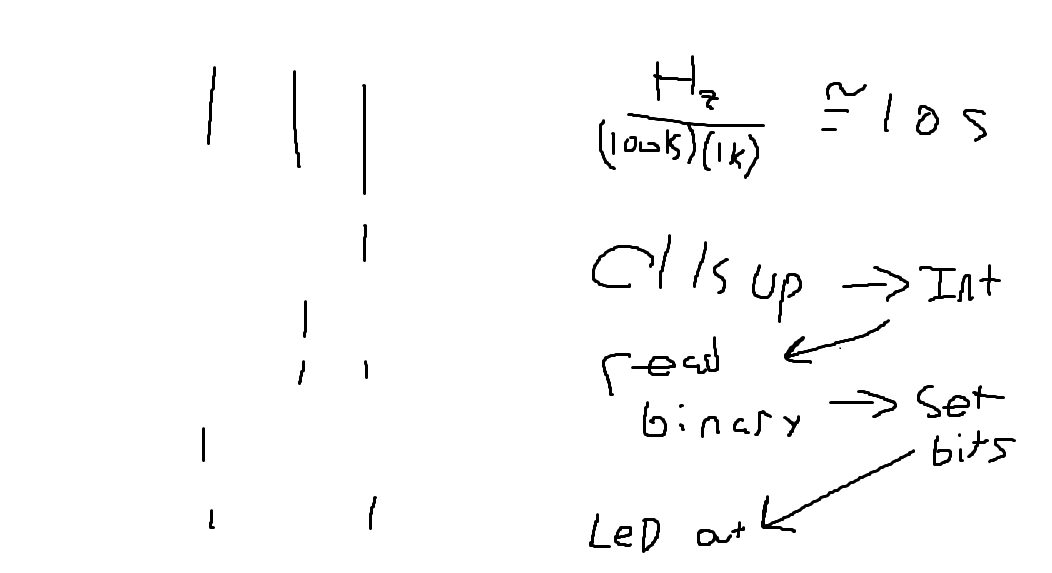 Hz
(100k)(1k) ≅ 10s
up → Int
read
binary → Set
bits
LeD out